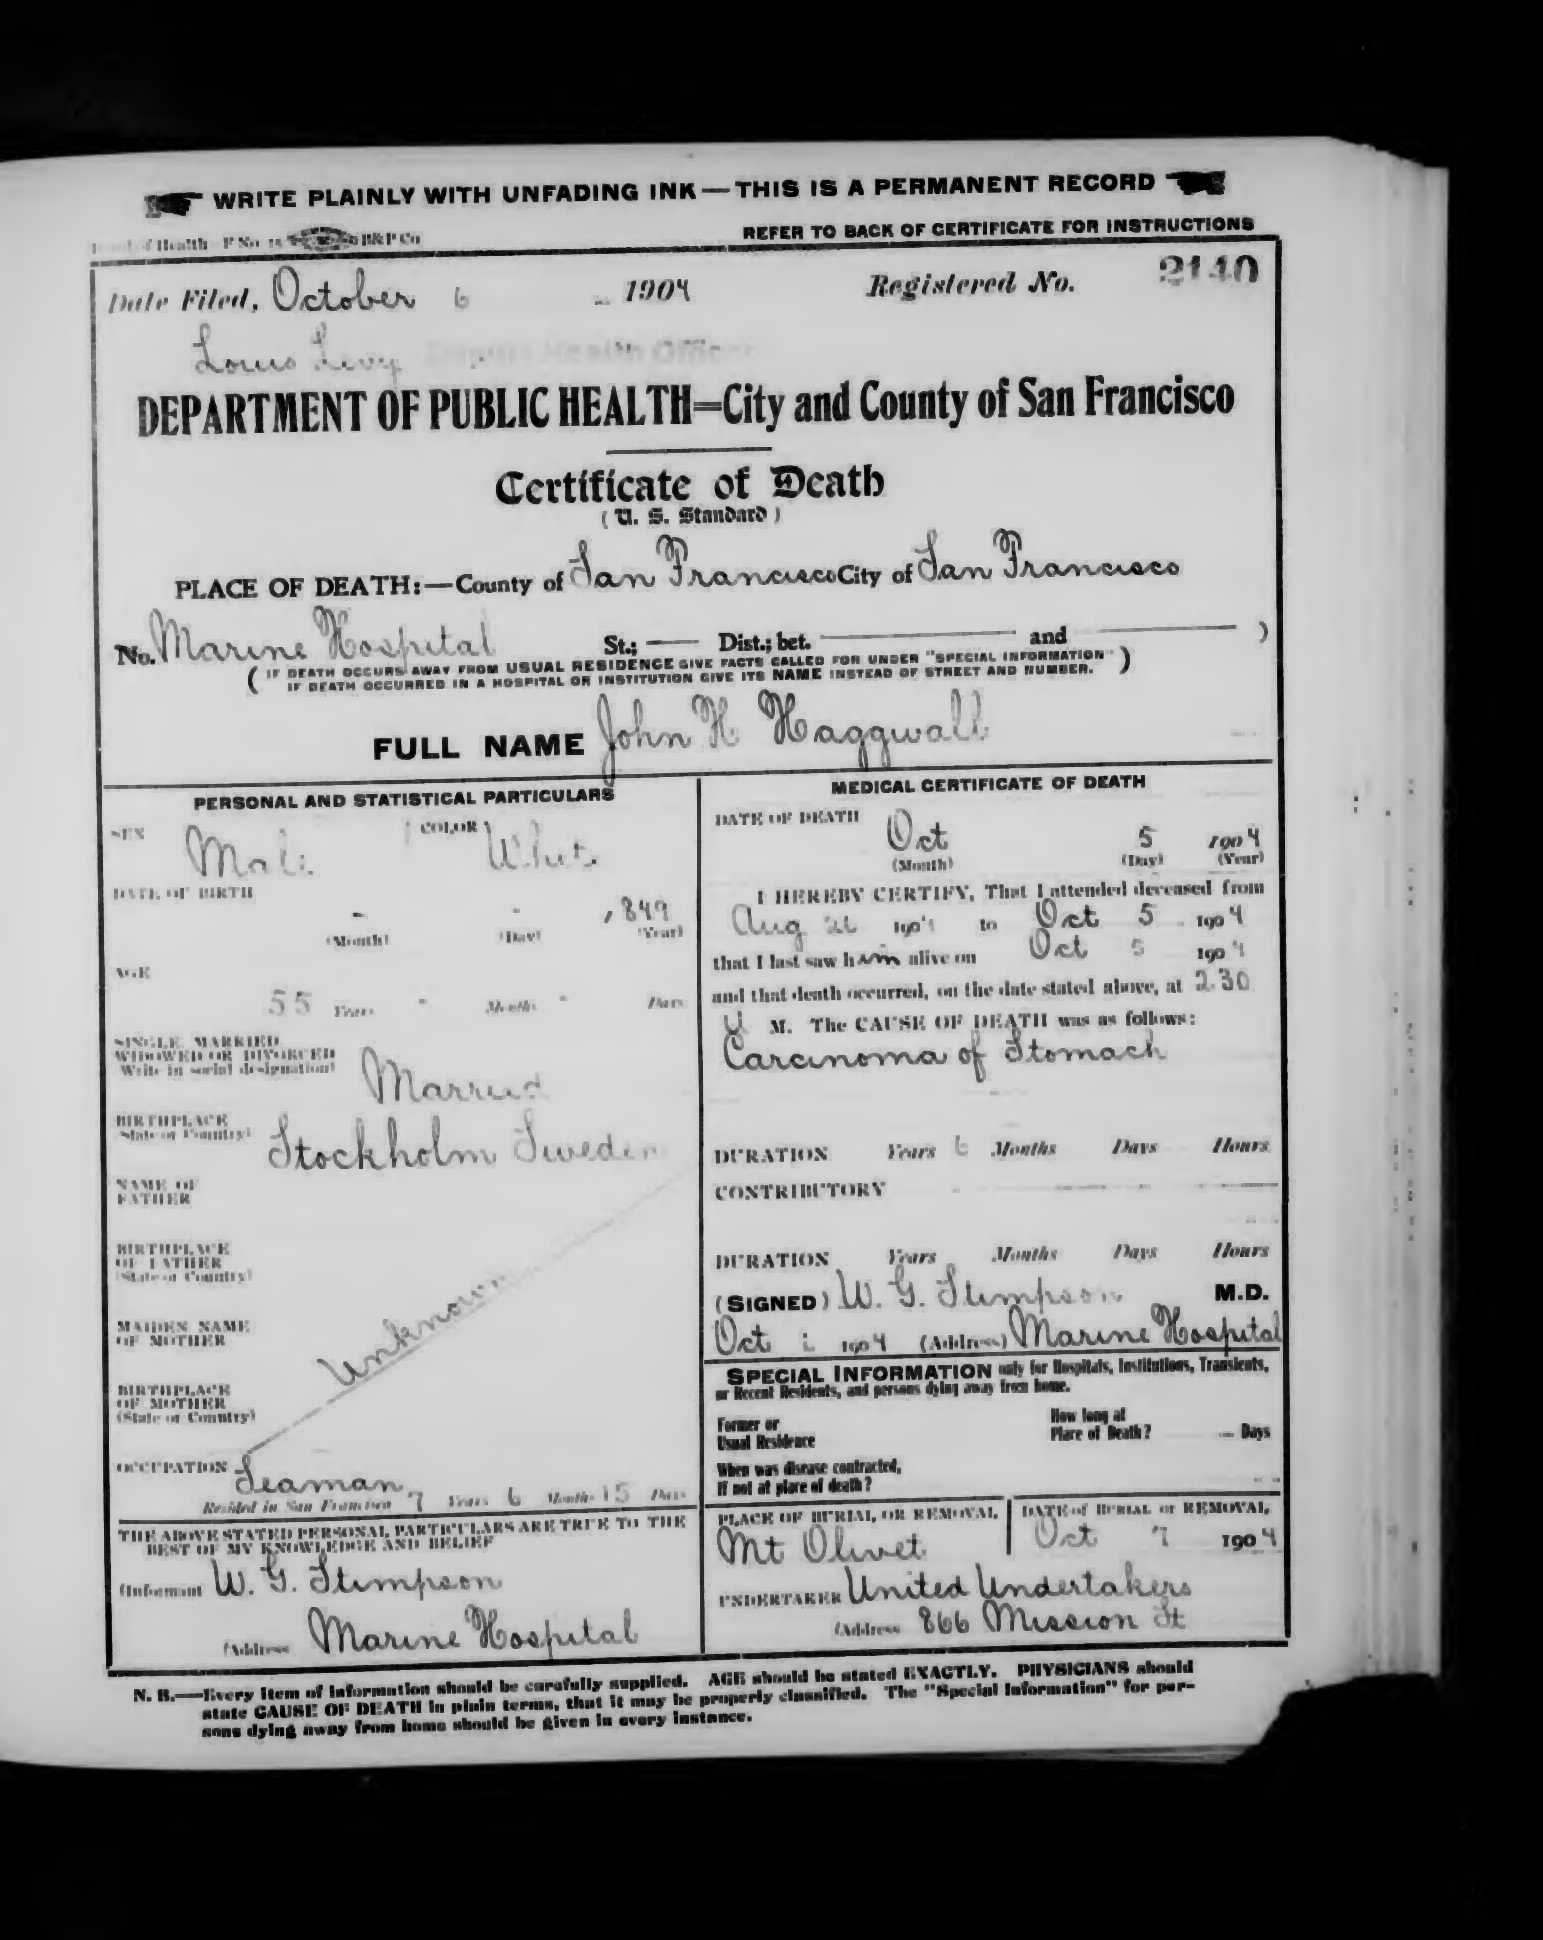 WRITE PLAINLY WITH UNFADING INK—THIS IS A PERMANENT RECORD
of Health F No. 15 B&P Co
REFER TO BACK OF CERTIFICATE FOR INSTRUCTIONS
Date Filed, October 6 1904 Registered No. 2140
Louis Levy Deputy Health Officer
DEPARTMENT OF PUBLIC HEALTH=City and County of San Francisco
Certificate of Death
( U. S. Standard )
PLACE OF DEATH:—County of San Francisco City of San Francisco
No. Marine Hospital St.; — Dist.; bet. — and — )
( IF DEATH OCCURS AWAY FROM USUAL RESIDENCE GIVE FACTS CALLED FOR UNDER "SPECIAL INFORMATION" )
IF DEATH OCCURRED IN A HOSPITAL OR INSTITUTION GIVE ITS NAME INSTEAD OF STREET AND NUMBER.
FULL NAME John H Haggwall
PERSONAL AND STATISTICAL PARTICULARS
SEX Male COLOR White
DATE OF BIRTH
- - 1849
(Month) (Day) (Year)
AGE
55 Years - Months - Days
SINGLE, MARRIED,
WIDOWED OR DIVORCED
Write in social designation)
Married
BIRTHPLACE
State or Country)
Stockholm Sweden
NAME OF
FATHER
BIRTHPLACE
OF FATHER
(State or Country)
Unknown
MAIDEN NAME
OF MOTHER
BIRTHPLACE
OF MOTHER
(State or Country)
OCCUPATION Seaman
Resided in San Francisco 7 Years 6 Months 15 Days
THE ABOVE STATED PERSONAL PARTICULARS ARE TRUE TO THE
BEST OF MY KNOWLEDGE AND BELIEF
(Informant W. G. Stimpson
(Address Marine Hospital
MEDICAL CERTIFICATE OF DEATH
DATE OF DEATH
Oct 5 1904
(Month) (Day) (Year)
I HEREBY CERTIFY, That I attended deceased from
Aug 26 1904 to Oct 5 1904
that I last saw him alive on Oct 5 1904
and that death occurred, on the date stated above, at 2.30
M. The CAUSE OF DEATH was as follows:
Carcinoma of Stomach
DURATION Years 6 Months Days Hours
CONTRIBUTORY
DURATION Years Months Days Hours
(SIGNED) W. G. Stimpson M.D.
Oct 1904 (Address) Marine Hospital
SPECIAL INFORMATION only for Hospitals, Institutions, Transients,
or Recent Residents, and persons dying away from home.
Former or
Usual Residence
How long at
Place of Death? — Days
When was disease contracted,
If not at place of death?
PLACE OF BURIAL OR REMOVAL
Mt Olivet
DATE of BURIAL or REMOVAL,
Oct 7 1904
UNDERTAKER United Undertakers
(Address 866 Mission St
N. B.—Every item of information should be carefully supplied. AGE should be stated EXACTLY. PHYSICIANS should
state CAUSE OF DEATH in plain terms, that it may be properly classified. The "Special Information" for per-
sons dying away from home should be given in every instance.